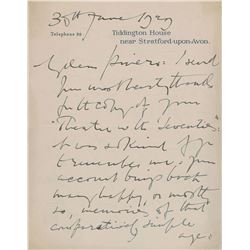 30th June 1929
Telephone 86
Tiddington House
near Stratford-upon-Avon.
I send
you most hearty thanks
for the copy of your
"Theatre in the Seventies".
It was so kind of you
to remember me. Your
account brings back
many happy, or
so, memories of that
comparatively simple
age: